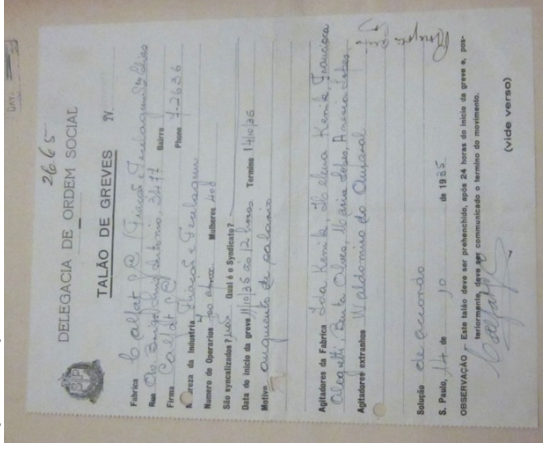 2665
DELEGACIA DE ORDEM SOCIAL
TALÃO DE GREVES N.
Fabrica Calfat S@ (Fiação e Tecelagem
Rua 3477 Bairro
Firma Calfat S@ Phone 7-2636
Natureza da Industria Fiação e Tecelagem
Numero de Operarios Mulheres 408
São syncalizados? não Qual é o Syndicato?
Data do inicio da greve 11/10/35 ás 12 horas Termino 14/10/35
Motivo augmento de salario
Agitadores da Fabrica Ida Kenik, Helena Kenik, Francisca
Alves, Maria Lopes, Lopes
Agitadores extranhos Waldomiro do Amaral
Solução de accordo
S. Paulo, 14 de 10 de 1935
OBSERVAÇÃO - Este talão deve ser prehenchido, após 24 horas do inicio da greve e, pos-
teriormente, deve ser communicado o termino do movimento.
(vide verso)